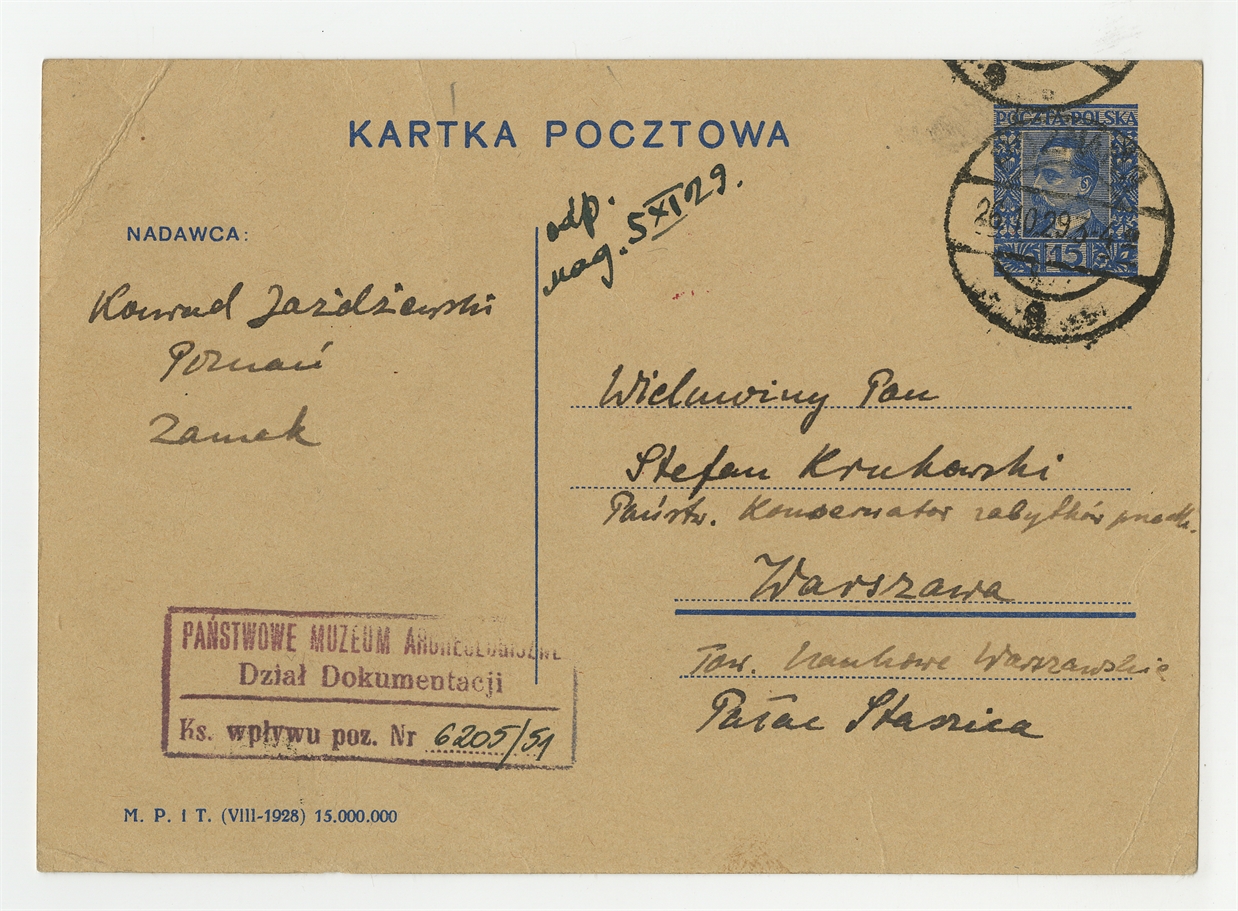 KARTKA POCZTOWA
POCZTA POLSKA
26.10.29
15
odp.
nag. 5 XI 29.
NADAWCA:
Konrad Jażdżewski
Poznań
Zamek
Wielmożny Pan
Stefan Krukowski
Państw. Konserwator zabytków
Warszawa
Tow. Naukowe Warszawskie
Pałac Staszica
PAŃSTWOWE MUZEUM ARCHEOLOGICZNE
Dział Dokumentacji
Ks. wpływu poz. Nr 6205/51
M. P. i T. (VIII-1928) 15.000.000